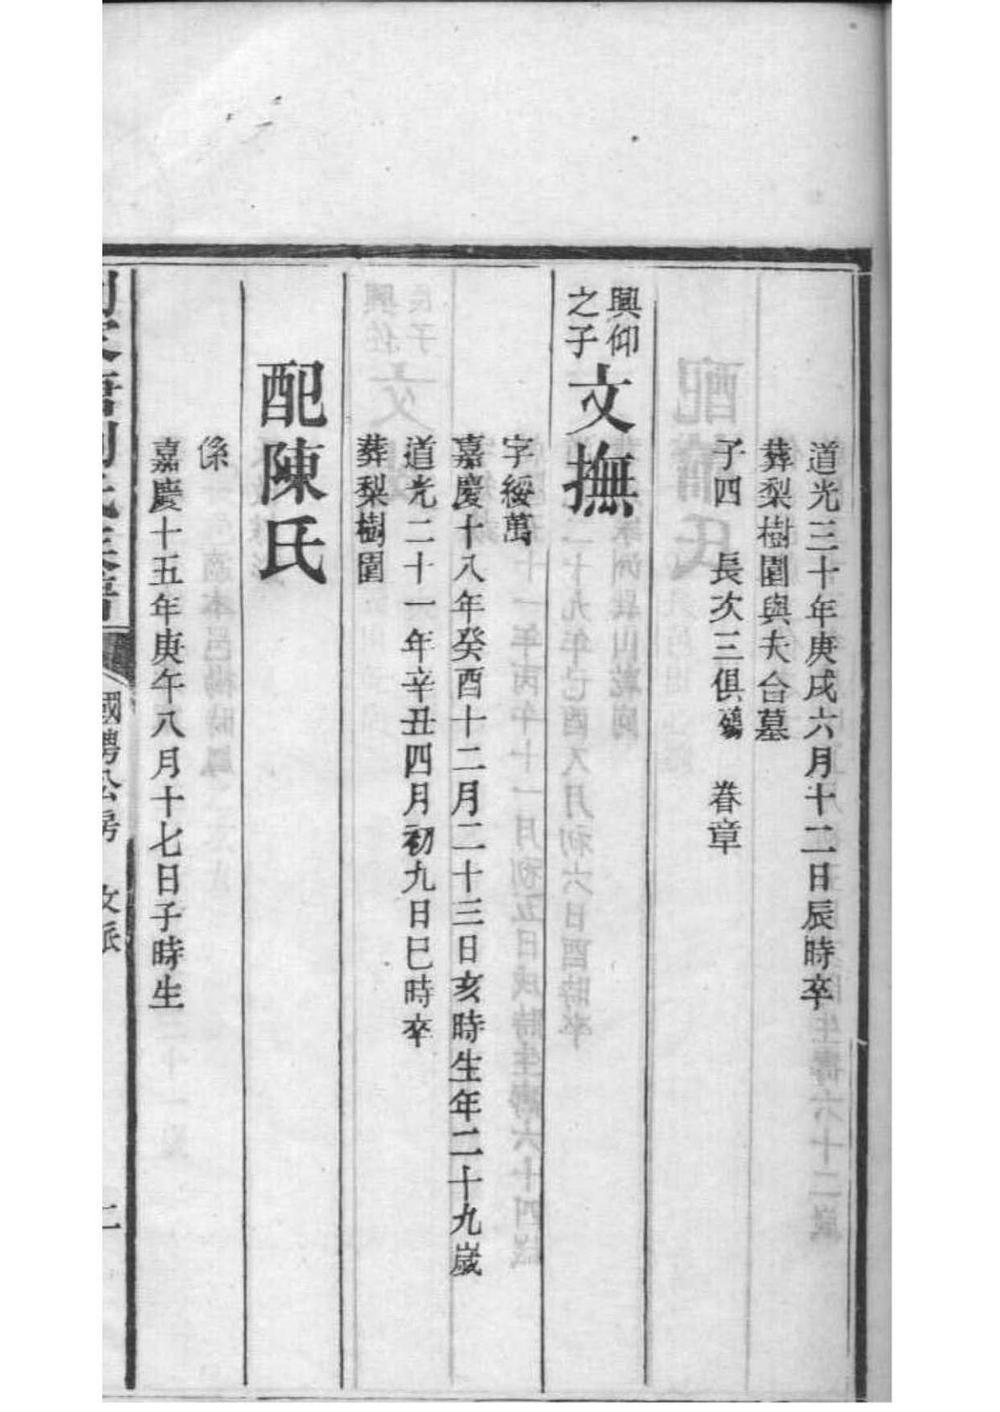 道光三十年庚戌六月十二日辰時卒
葬梨樹園與夫合墓
子四　長次三俱殤　眷章
興仰
之子
文撫
字綏萬
嘉慶十八年癸酉十二月二十三日亥時生年二十九歲
道光二十一年辛丑四月初九日巳時卒
葬梨樹園
配陳氏
係
嘉慶十五年庚午八月十七日子時生
國聘公房　文派
二